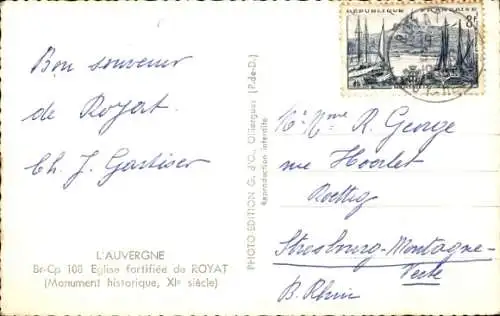 Bon souvenir
de Royat.
Ch. J.
L'AUVERGNE
Br-Cp 108 Eglise fortifiée de ROYAT
(Monument historique, XIe siècle)
PHOTO-EDITION G. d'O., Olliergues (P.-de-D.)
Reproduction interdite
RÉPUBLIQUE FRANÇAISE
8f
R. George
rue
Strasbourg-Montagne-
Verte
B. Rhin